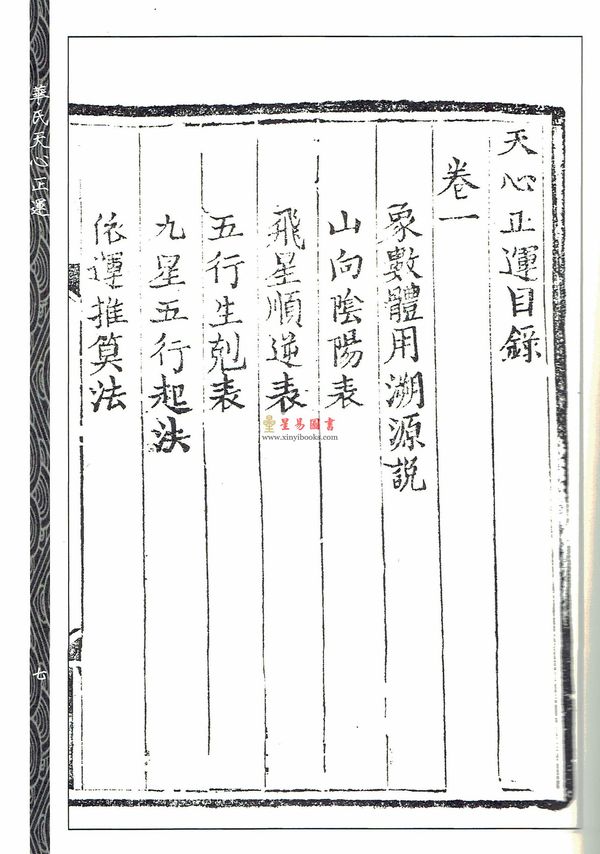 天心正運目錄
卷一
象數體用溯源説
山向陰陽表
飛星順逆表
五行生剋表
九星五行起法
依運推算法
華氏天心正運
七
星易圖書
www.xinyibooks.com